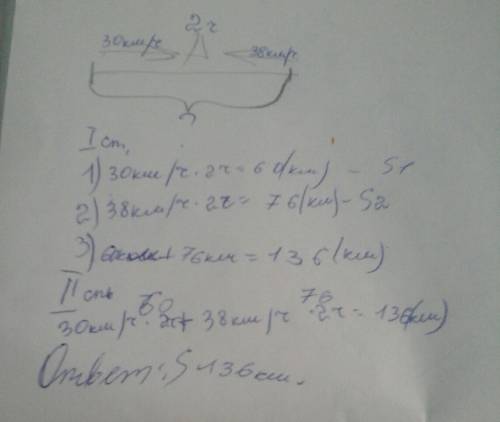 2ч
30км/ч 38км/ч
?
I сп.
1) 30км/ч · 2ч = 60(км) - S1
2) 38км/ч · 2ч = 76(км) - S2
3) + 76км = 136(км)
II сп
60 76
30км/ч · 2ч + 38км/ч · 2ч = 136(км)
Ответ: S 136км.